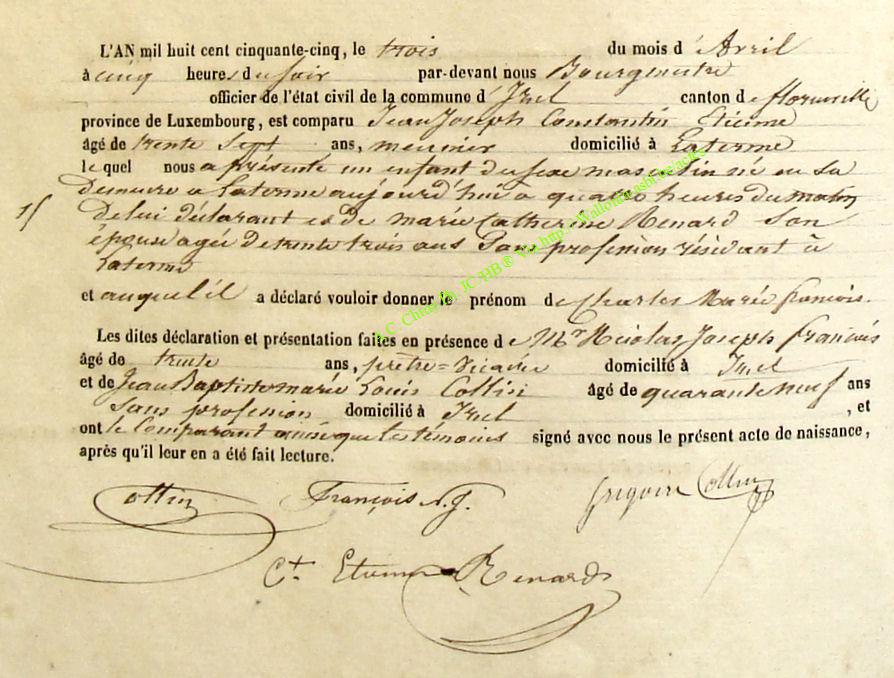 L'AN mil huit cent cinquante-cinq, le trois du mois d'Avril
à cinq heures du soir par-devant nous Bourgmestre
officier de l'état civil de la commune d'Izel canton de florenville
province de Luxembourg, est comparu Jean Joseph Constantin Etienne
âgé de trente Sept ans, meunier domicilié à Laterme
le quel nous a présenté un enfant du sexe masculin né en Sa
Demeure a Laterme aujourd'hui a quatre heures du matin
1/ De lui déclarant et de marie Catherine Renard Son
épouse agée de trente trois ans Sans profession résidant à
Laterme
et auquel il a déclaré vouloir donner le prénom de Charles Marie françois.
Les dites déclaration et présentation faites en présence de Mr Nicolas Joseph François
âgé de trente ans, prêtre=Vicaire domicilié à Izel
et de Jean Baptiste marie Louis Collin âgé de quarante neuf ans
Sans profession domicilié à Izel, et
ont le Comparant ainsi que les témoins signé avec nous le présent acte de naissance,
après qu'il leur en a été fait lecture.
Collin François N.J. Grégoire Collin
Ct. Etienne Renard